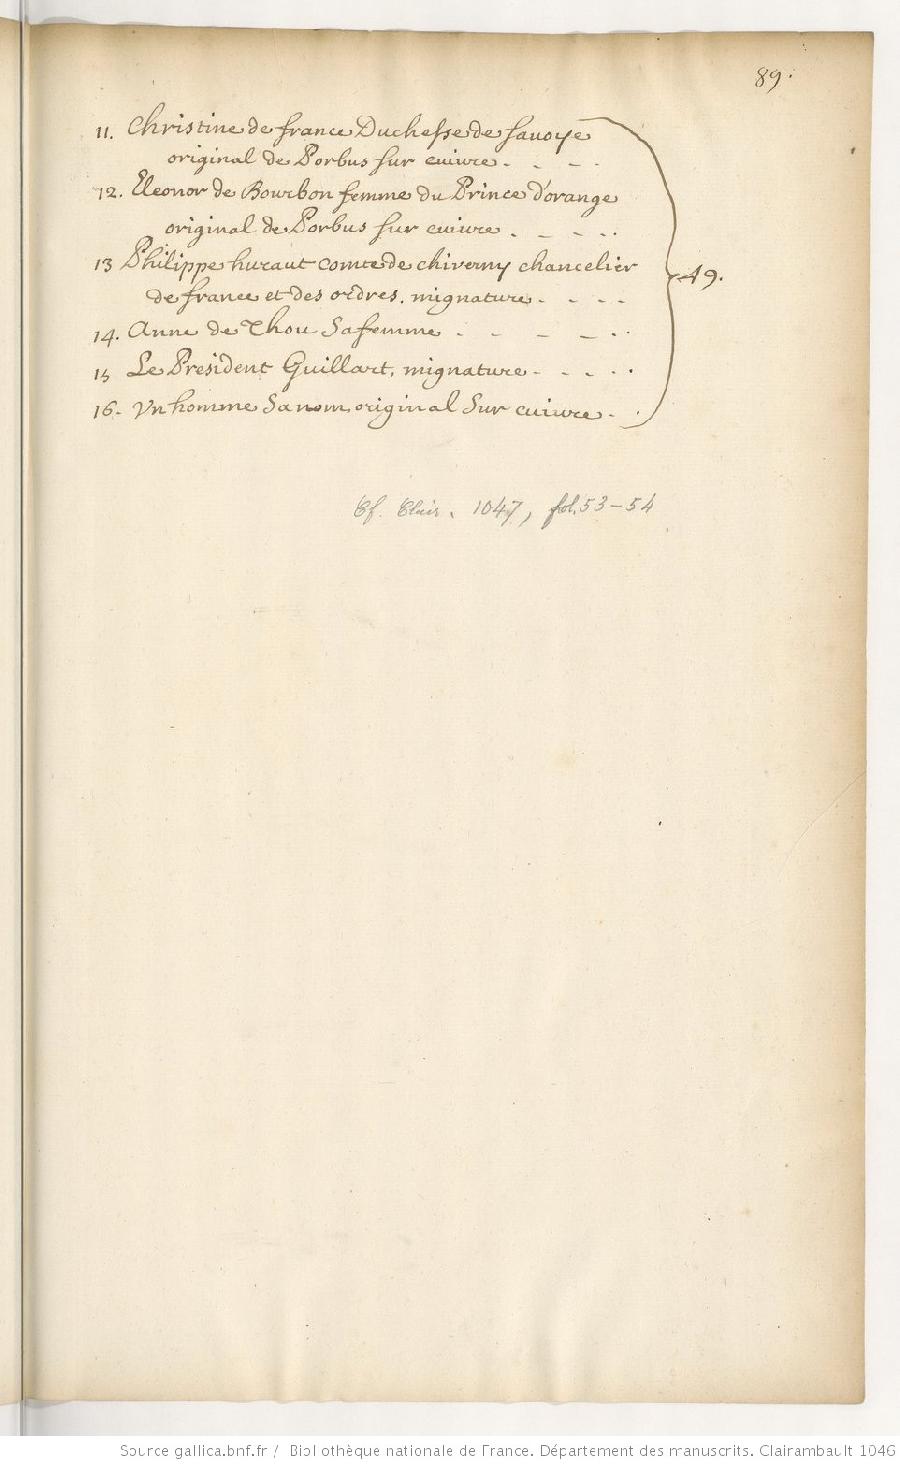 89.
11. Christine de france Duchesse de Savoye
original de Porbus sur cuivre. - - - .
12. Eleonor de Bourbon femme du Prince d'orange
original de Porbus sur cuivre. - - . .
13 Philippe huraut comte de chiverny chancelier
de france et des ordres. mignature. - - -
49.
14. Anne de Thou Sa femme - - - - . .
15 Le President Guillart, mignature. - - - . .
16. Un homme Sa nom original Sur cuivre. .
Cf. Clair. 1047, fol. 53-54
Source gallica.bnf.fr / Bibliothèque nationale de France. Département des manuscrits. Clairambault 1046